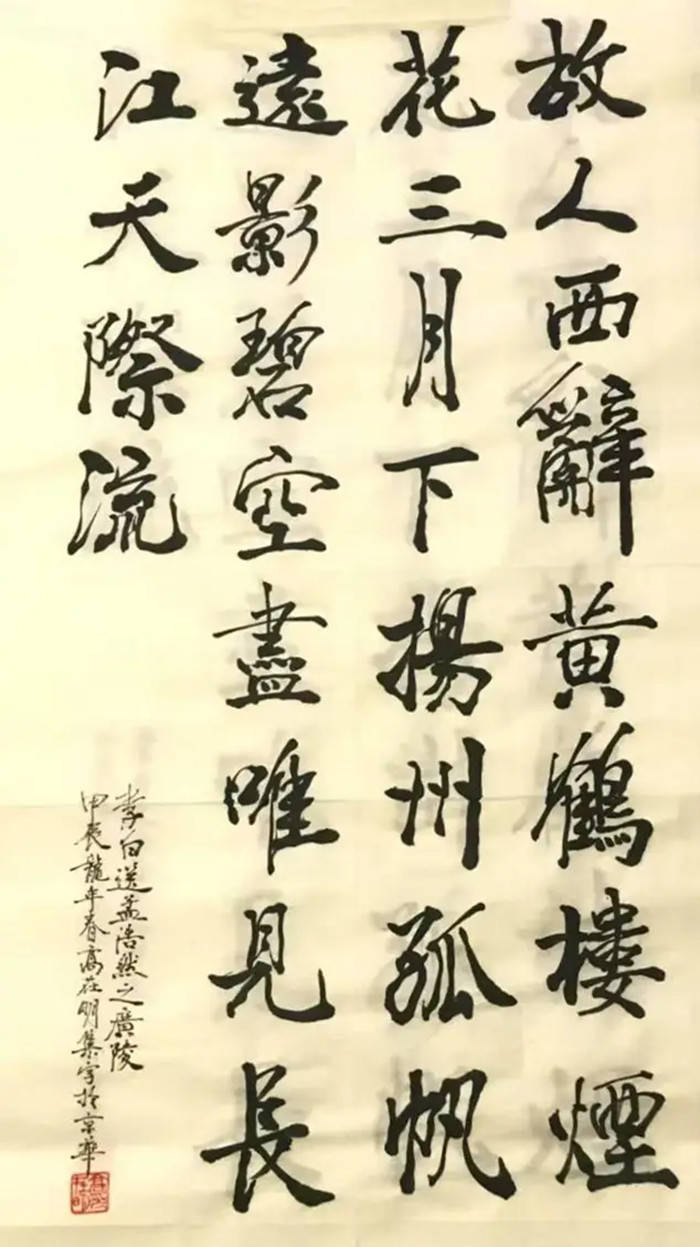 故人西辭黃鶴樓煙
花三月下揚州孤帆
遠影碧空盡唯見長
江天際流
李白送孟浩然之廣陵
甲辰龍年春高在明集字於京華